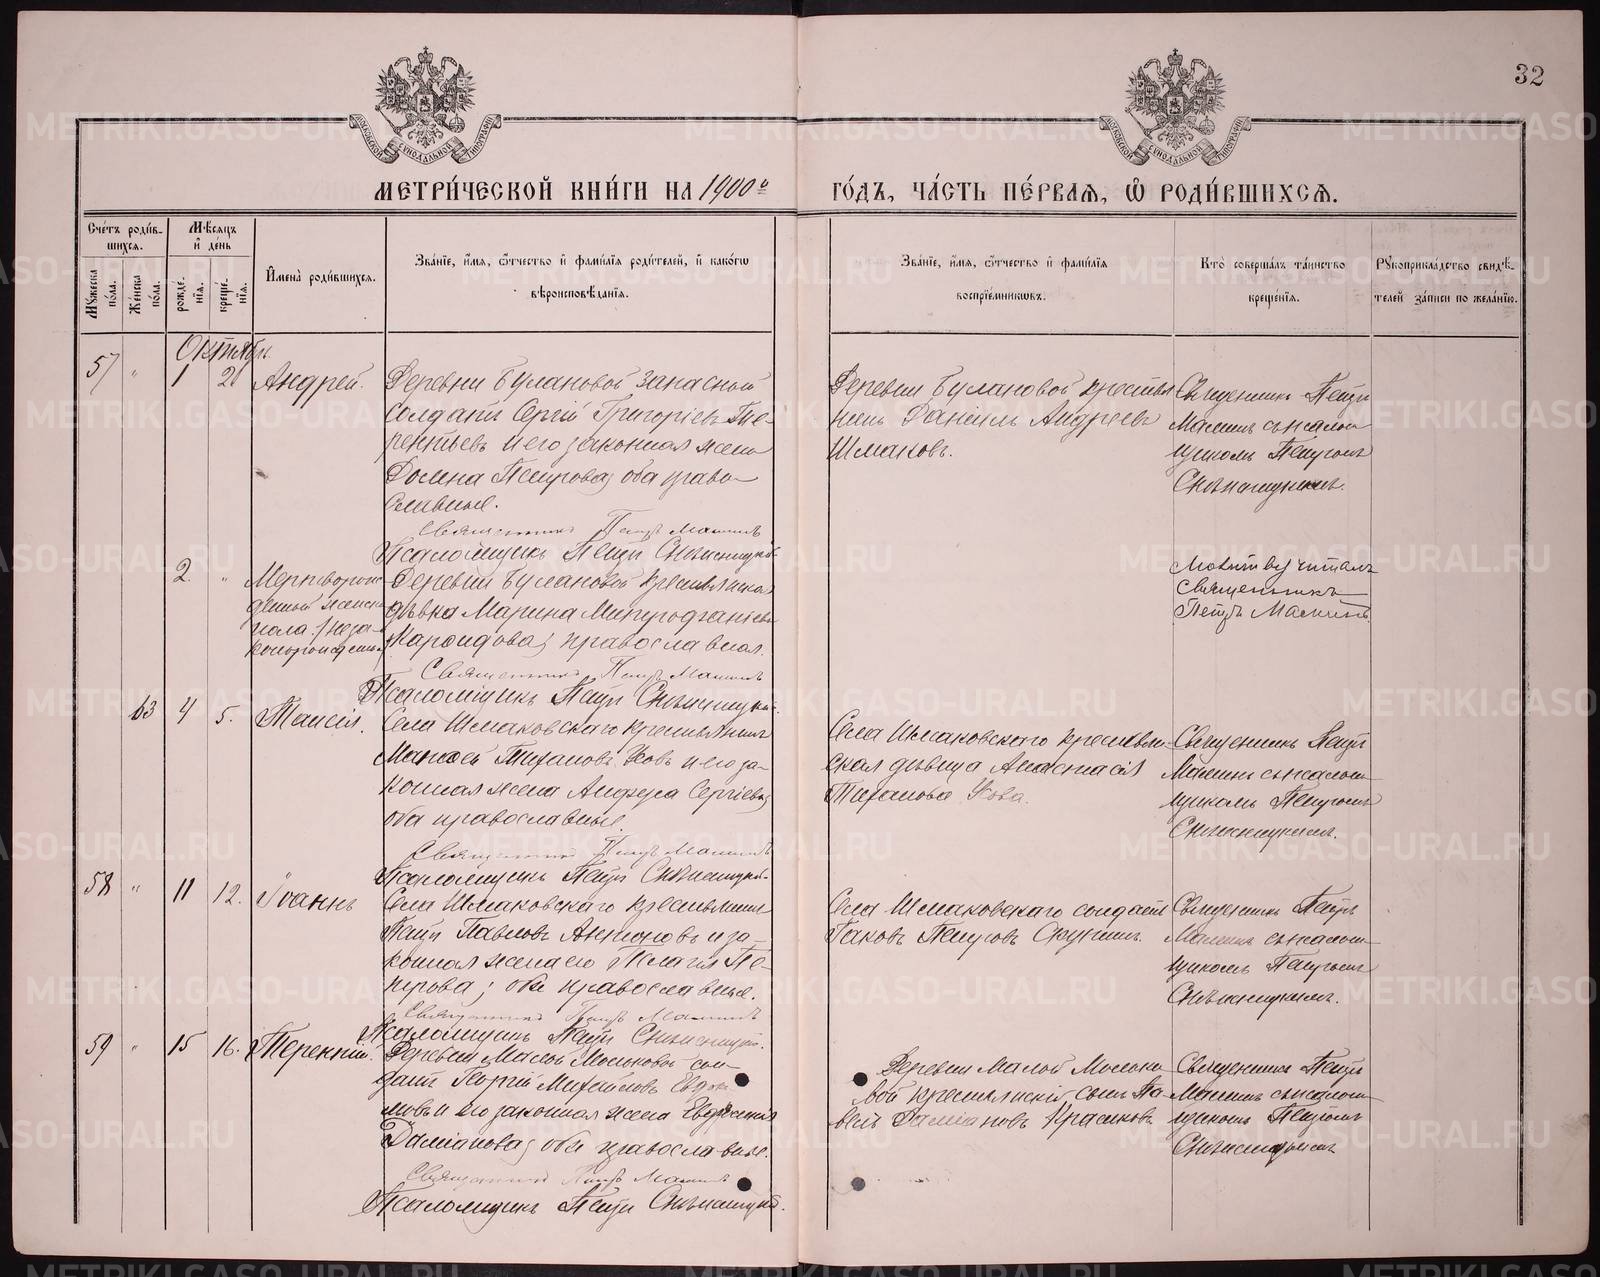 32
МОСКОВСКОЙ СУНОДАЛЬНОЙ ТИПОГРАФІИ
МОСКОВСКОЙ СУНОДАЛЬНОЙ ТИПОГРАФІИ
МЕТРИ́ЧЕСКОЙ КНИ́ГИ НА 1900й
ГО́ДЪ, ЧА́СТЬ ПЕ́РВАЯ, Ѡ РОДИ́ВШИХСЯ.
Сче́тъ роди́в-
шихся.
Мужеска по́ла.
Же́нска по́ла.
Мѣ́сяцъ
и де́нь
рожде́-
нїя.
креще́-
нїя.
Имена̀ роди́вшихся.
Зва́нїе, и́мя, ѻ́тчество и фами́лїя роди́телей, и како́гѡ
вѣроисповѣ́данїя.
Зва́нїе, и́мя, ѻ́тчество и фами́лїя
воспрїе́мникѡвъ.
Кто̀ соверша́лъ та́инство
креще́нїя.
Рукоприкла́дство свидѣ́-
телей за́писи по жела́нїю.
Октябрь.
57 " 1 2 Андрей.
Деревни Булановой запасный
солдатъ Сергій Григоріевъ Те-
рентьевъ и его законная жена
Петрова, оба право-
славные.
Священникъ Петръ Малининъ
Псаломщикъ Петръ Снѣжницкій
Деревни Булановой крестья-
нинъ Даніилъ Андреевъ
Шмаковъ.
Священникъ Петръ
съ псалом-
щикомъ Петромъ
2 " Мертворож-
денный женска
пола. /неза-
коннорожденный
Деревни Булановой крестьянская
дѣвка Марина Митрофаніева
православная.
Священникъ Петръ
Псаломщикъ Петръ
Молитву читалъ
Священникъ
Петръ
63 4 5. Таисія.
Села Шмаковскаго крестьянинъ
Тихановъ Ховъ и его за-
конная жена Анфуса Сергіева,
оба православные.
Священникъ Петръ
Псаломщикъ Петръ
Села Шмаковскаго крестьян-
ская дѣвица Анастасія
Тиханова
Священникъ Петръ
съ псалом-
щикомъ Петромъ
58 " 11 12. Іоаннъ
Села Шмаковскаго крестьянинъ
Петръ Павловъ Антоновъ и за-
конная жена его Пелагія Пе-
трова; оба православные.
Священникъ Петръ
Псаломщикъ Петръ
Села Шмаковскаго солдатъ
Іаковъ Петровъ
Священникъ Петръ
съ псалом-
щикомъ Петромъ
59 " 15 16. Терентій.
Деревни Малой сол-
датъ Георгій Михайловъ Евдоки-
мовъ и его законная жена
Даміанова, оба православные.
Священникъ Петръ
Псаломщикъ Петръ
Деревни Малой
вой крестьянскій сынъ Па-
велъ Даміановъ Красиковъ
Священникъ Петръ
съ псалом-
щикомъ Петромъ
METRIKI.GASO-URAL.RU